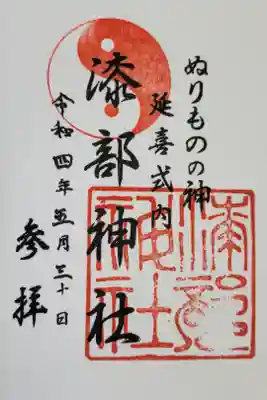 ぬりものの神
延喜式内
漆部神社
令和四年五月三十日
参拝
漆部神社